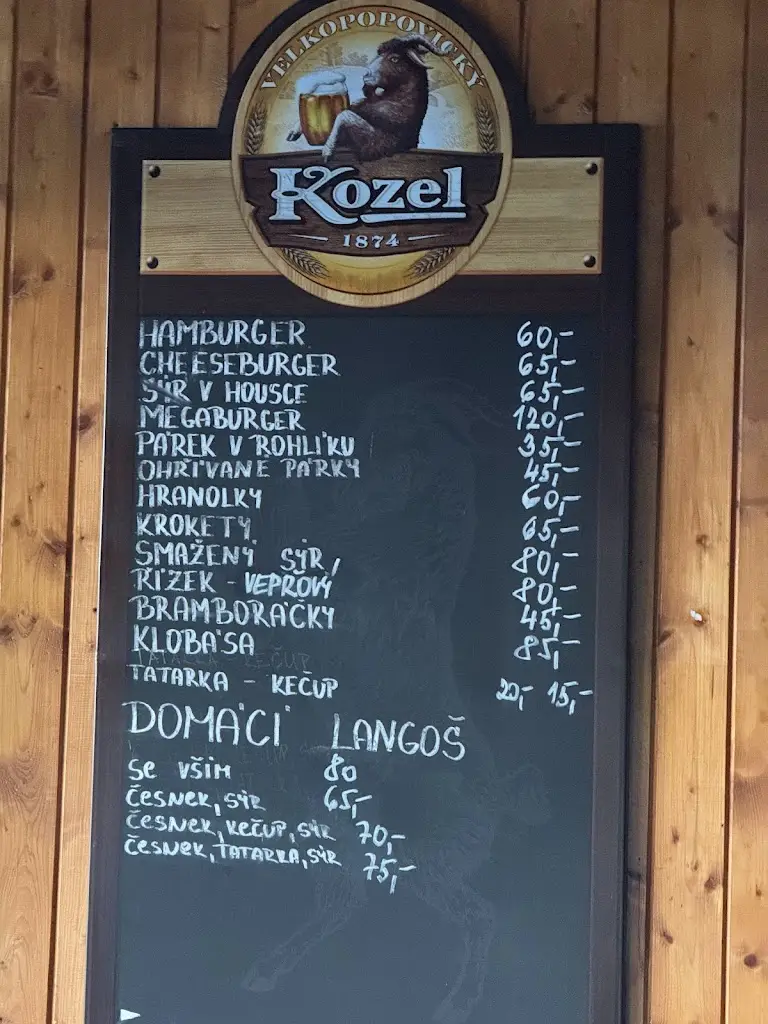 VELKOPOPOVICKÝ
Kozel
1874
HAMBURGER 60,-
CHEESEBURGER 65,-
SÝR V HOUSCE 65,-
MEGABURGER 120,-
PÁREK V ROHLÍKU 35,-
OHŘÍVANÉ PÁRKY 45,-
HRANOLKY 60,-
KROKETY 65,-
SMAŽENÝ SÝR 80,-
ŘÍZEK - VEPŘOVÝ 80,-
BRAMBORÁČKY 45,-
KLOBÁSA 85,-
TATARKA - KEČUP
TATARKA - KEČUP 20,- 15,-
DOMÁCÍ LANGOŠ
SE VŠÍM 80
ČESNEK, SÝR 65,-
ČESNEK, KEČUP, SÝR 70,-
ČESNEK, TATARKA, SÝR 75,-